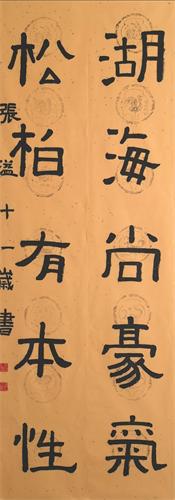 湖海尚豪氣
松柏有本性
張溢十一歲書